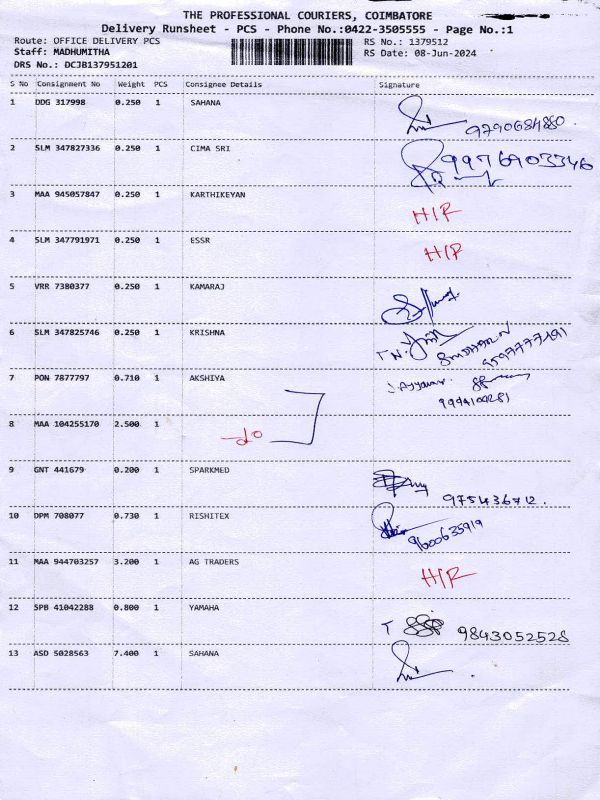 THE PROFESSIONAL COURIERS, COIMBATORE
Delivery Runsheet - PCS - Phone No.:0422-3505555 - Page No.:1
Route: OFFICE DELIVERY PCS RS No.: 1379512
Staff: MADHUMITHA RS Date: 08-Jun-2024
DRS No.: DCJB137951201
S No Consignment No Weight PCS Consignee Details Signature
1 DDG 317998 0.250 1 SAHANA
9790684880.
2 SLM 347827336 0.250 1 CIMA SRI
9976903346
3 MAA 945057847 0.250 1 KARTHIKEYAN
H/R
4 SLM 347791971 0.250 1 ESSR
H/R
5 VRR 7380377 0.250 1 KAMARAJ
6 SLM 347825746 0.250 1 KRISHNA
T N.
9597777191
7 PON 7877797 0.710 1 AKSHIYA
9994100281
8 MAA 104255170 2.500 1
do
9 GNT 441679 0.200 1 SPARKMED
975436712.
10 DPM 708077 0.730 1 RISHITEX
9600635919
11 MAA 944703257 3.200 1 AG TRADERS
H/R
12 SPB 41042288 0.800 1 YAMAHA
T 9843052528
13 ASD 5028563 7.400 1 SAHANA